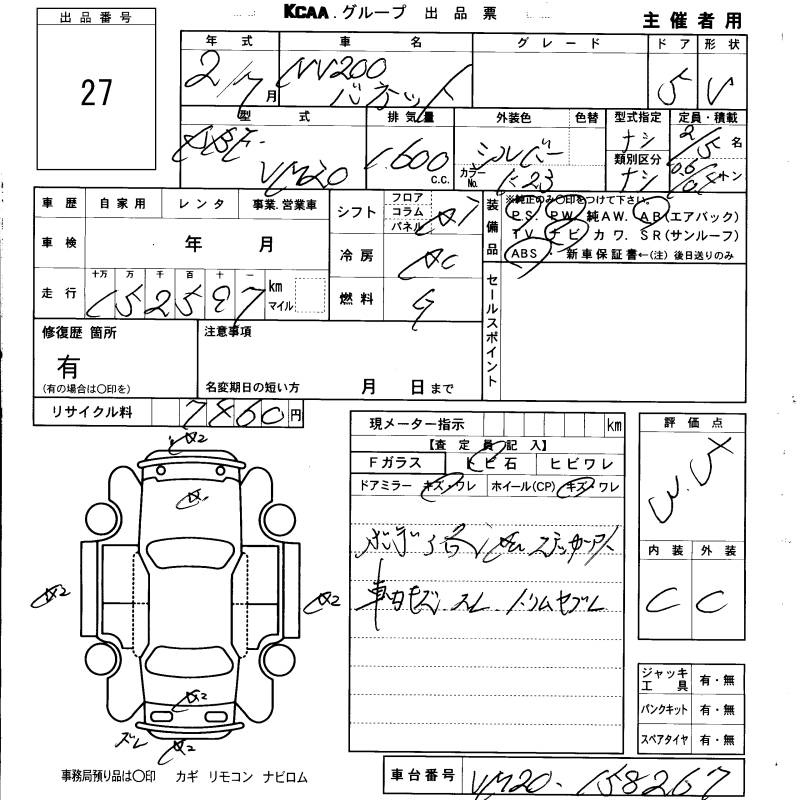 KCAA.グループ 出品票
主催者用
出品番号
27
年式 車名 グレード ドア 形状
2/7月 NV200 バネット 5 V
型式 排気量 外装色 色替 型式指定 定員・積載
VM20 1.600c.c. シルバー カラーNo. K23 ナシ 2/5名
類別区分 ナシ 0.6トン
車歴 自家用 レンタ 事業.営業車
シフト フロア コラム パネル AT
装備品 ※純正のみ○印をつけて下さい。
P.S. P.W. 純AW. AB(エアバック)
T.V. ナビ カワ. SR(サンルーフ)
ABS ・ 新車保証書←(注)後日送りのみ
車検 年 月
冷房 AC
走行 十万 万 千 百 十 一 km マイル
152597
燃料 G
セールスポイント
修復歴 箇所
有
(有の場合は○印を)
注意事項
名変期日の短い方 月 日まで
リサイクル料 7860円
現メーター指示 km
【査定員記入】
Fガラス トビ石 ヒビワレ
ドアミラー キズ・ワレ ホイール(CP) キズ・ワレ
ステッカーアト
車内キズ スレ トリムヤブレ
評価点
内装 外装
C C
A2
A
A2 A2
A2
ズレ A2
ジャッキ工具 有・無
パンクキット 有・無
スペアタイヤ 有・無
事務局預り品は○印 カギ リモコン ナビロム
車台番号 VM20-158267